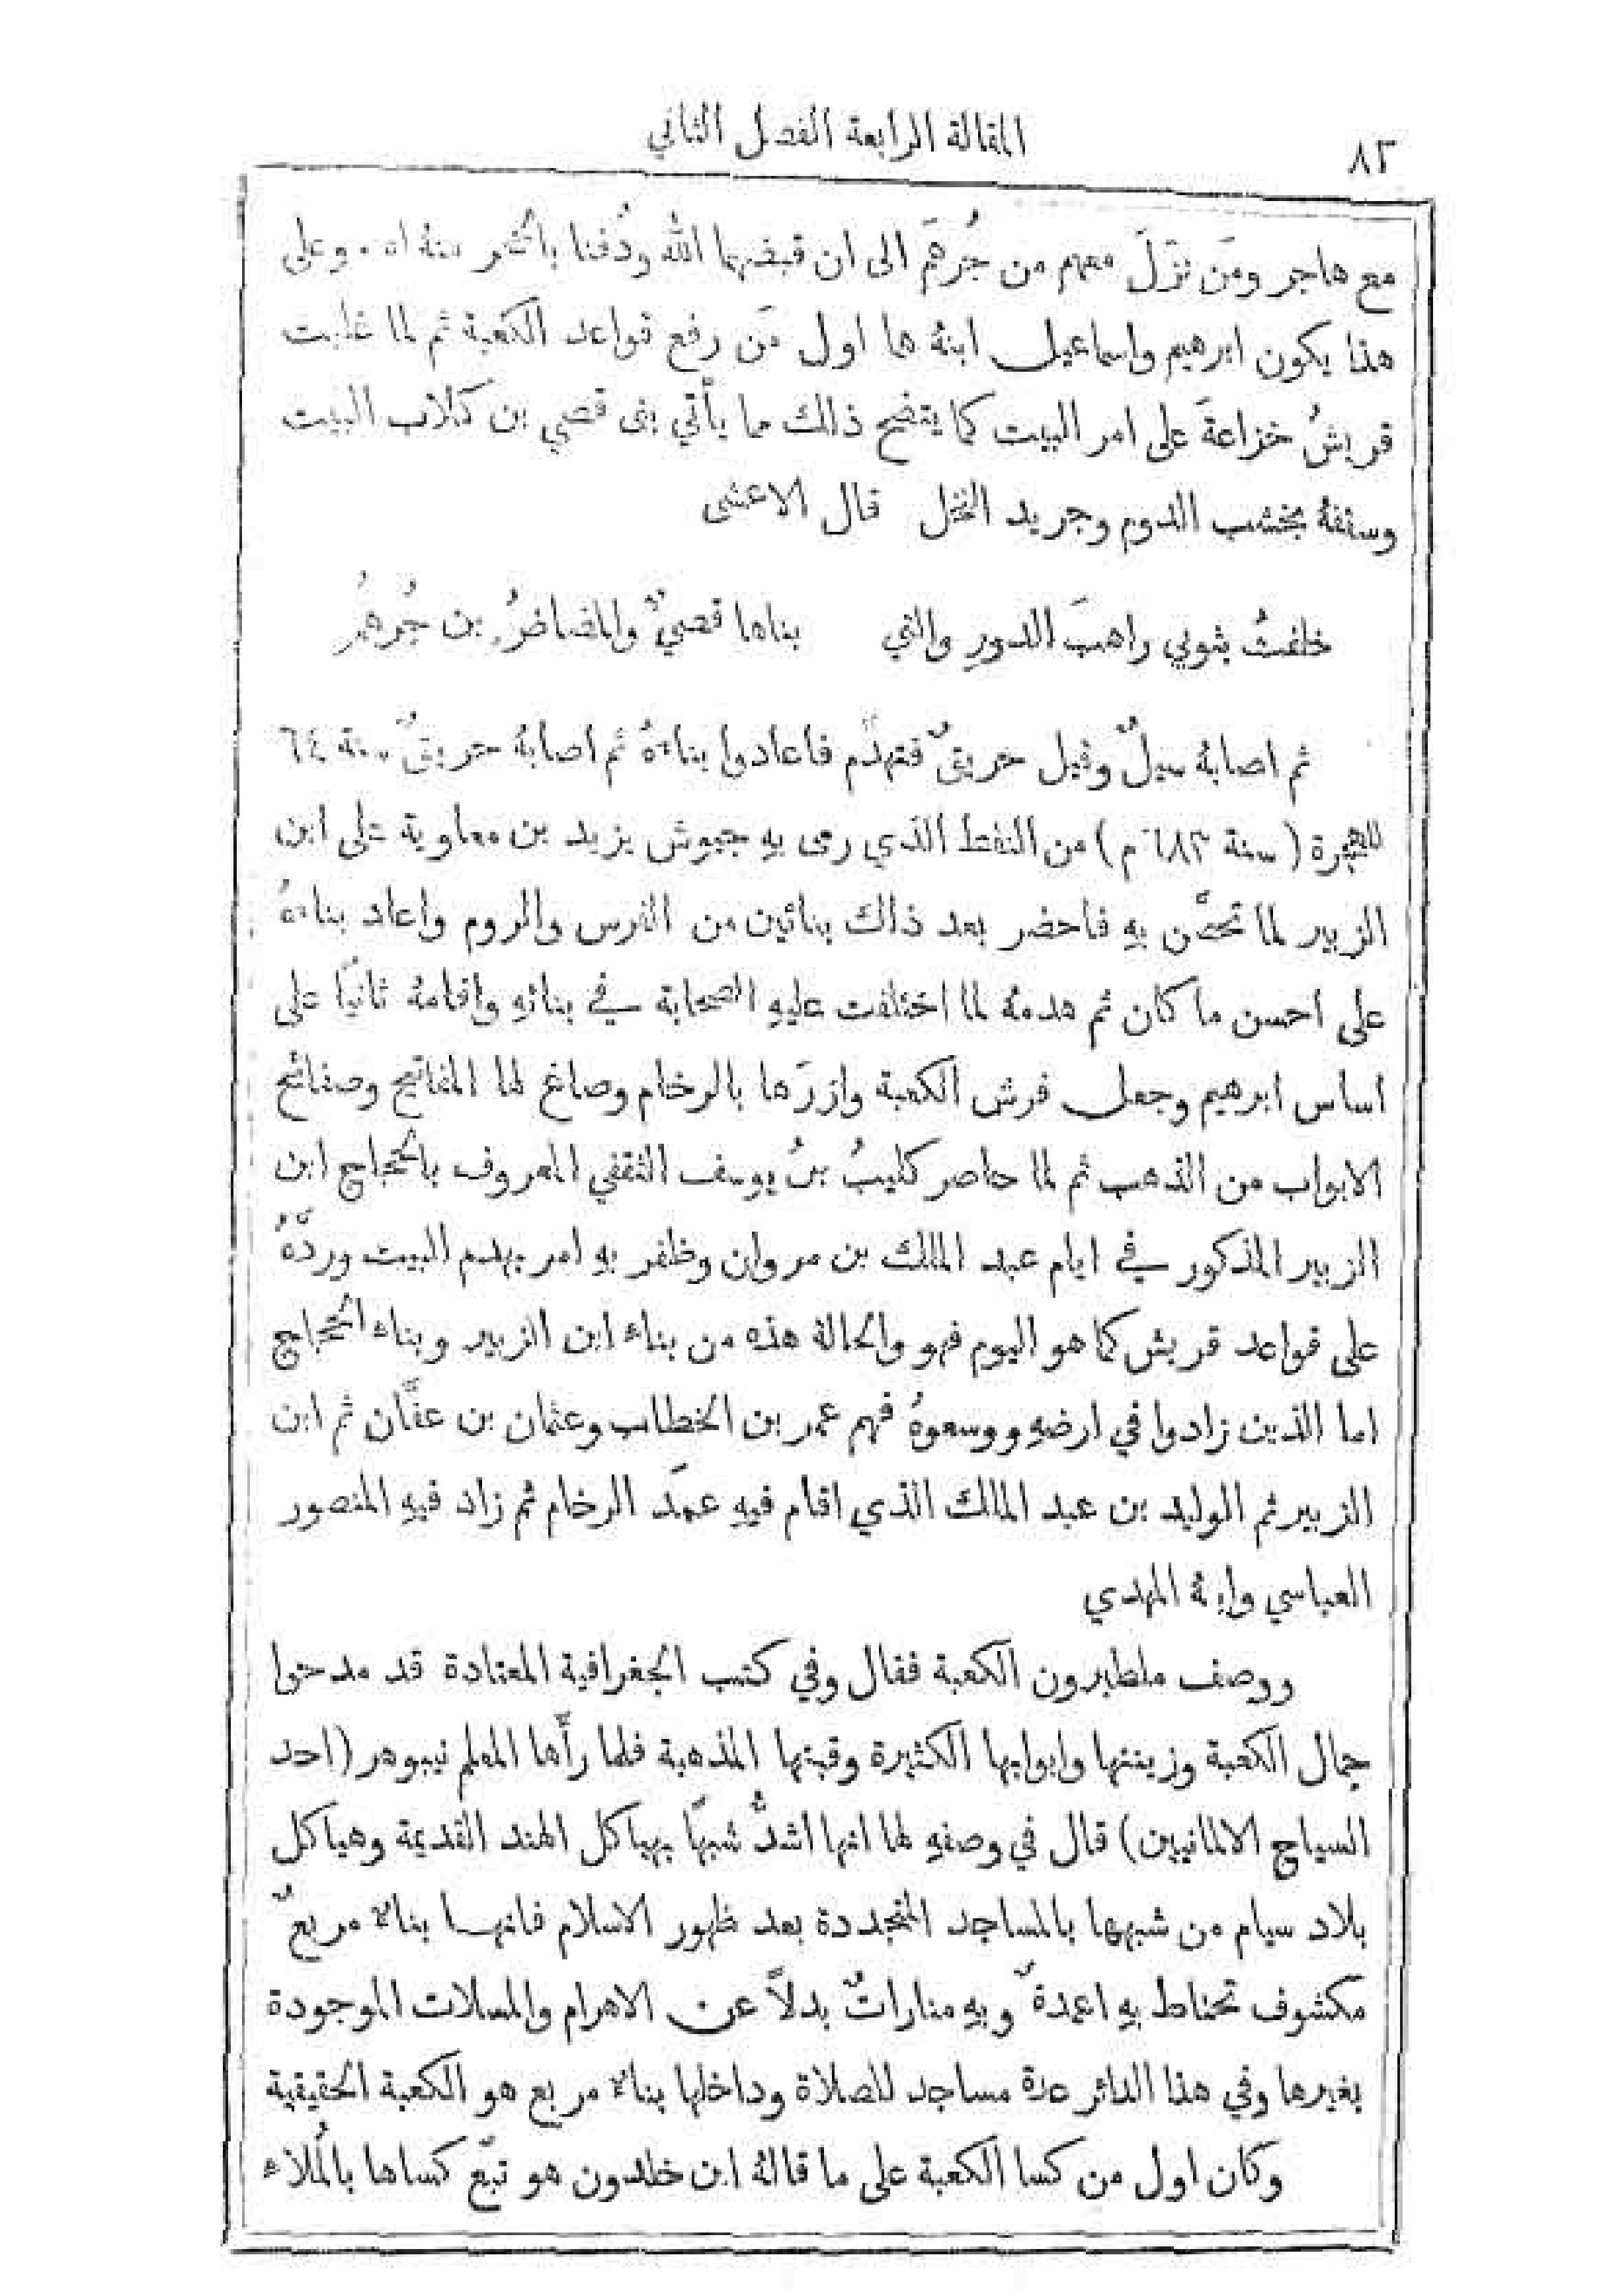 ٨٣
المقالة الرابعة الفصل الثاني
مع هاجر ومَن نزلَ معهم من جُرهمَ الى ان قبضهما الله ودُفنا بالحجر منهُ اه . وعلى
هذا يكون ابرهيم واسماعيل ابنهُ هما اول مَن رفع قواعد الكعبة ثم لما غلبت
قريشُ خزاعةَ على امر البيت كما يتضح ذلك مما يأتي بنى قصي بن كلاب البيت
وسقفهُ بخشب الدوم وجريد النخل قال الاعشى
خلفتُ بثوبي راهبَ الدورِ والتي بناها قصيٌّ والمضاضُ بن جُرهمُ
ثم اصابهُ سيلٌ وقيل حريقٌ فتهدَّم فاعادوا بناءَهُ ثم اصابهُ حريقٌ سنة ٦٤
للهجرة (سنة ٦٨٣ م) من النفط الذي رمى بهِ جيوش يزيد بن معاوية على ابن
الزبير لما تحصَّن بهِ فاحضر بعد ذلك بنائين من الفرس والروم واعاد بناءَهُ
على احسن ما كان ثم هدمهُ لما اختلفت عليهِ الصحابة في بنائهِ واقامهُ ثانيًا على
اساس ابرهيم وجعل فرش الكعبة وازرَها بالرخام وصاغ لها المفاتيح وصفائح
الابواب من الذهب ثم لما حاصر كليبُ بنُ يوسف الثقفي المعروف بالحجاج ابن
الزبير المذكور في ايام عبد الملك بن مروان وظفر بهِ امر بهدم البيت وردَّهُ
على قواعد قريش كما هو اليوم فهو والحالة هذه من بناء ابن الزبير وبناء الحجاج
اما الذين زادوا في ارضهِ ووسعوهُ فهم عمر بن الخطاب وعثمان بن عفَّان ثم ابن
الزبير ثم الوليد بن عبد الملك الذي اقام فيهِ عمَد الرخام ثم زاد فيهِ المنصور
العباسي وابنهُ المهدي
ووصف ملطبرون الكعبة فقال وفي كتب الجغرافية المعتادة قد مدحوا
جمال الكعبة وزينتها وابوابها الكثيرة وقبتها المذهبة فلما رأَها المعلم نيبوهر (احد
السياح الالمانيين) قال في وصفهِ لها انها اشدُّ شبهًا بهياكل الهند القديمة وهياكل
بلاد سيام من شبهها بالمساجد المتجددة بعد ظهور الاسلام فانهـا بناءٌ مربعٌ
مكشوف تحتاط بهِ اعمدةٌ وبهِ مناراتٌ بدلاً عن الاهرام والمسلات الموجودة
بغيرها وفي هذا الدائر عدة مساجد للصلاة وداخلها بناءٌ مربع هو الكعبة الحقيقية
وكان اول من كسا الكعبة على ما قالهُ ابن خلدون هو تبَّع كساها بالمُلاء